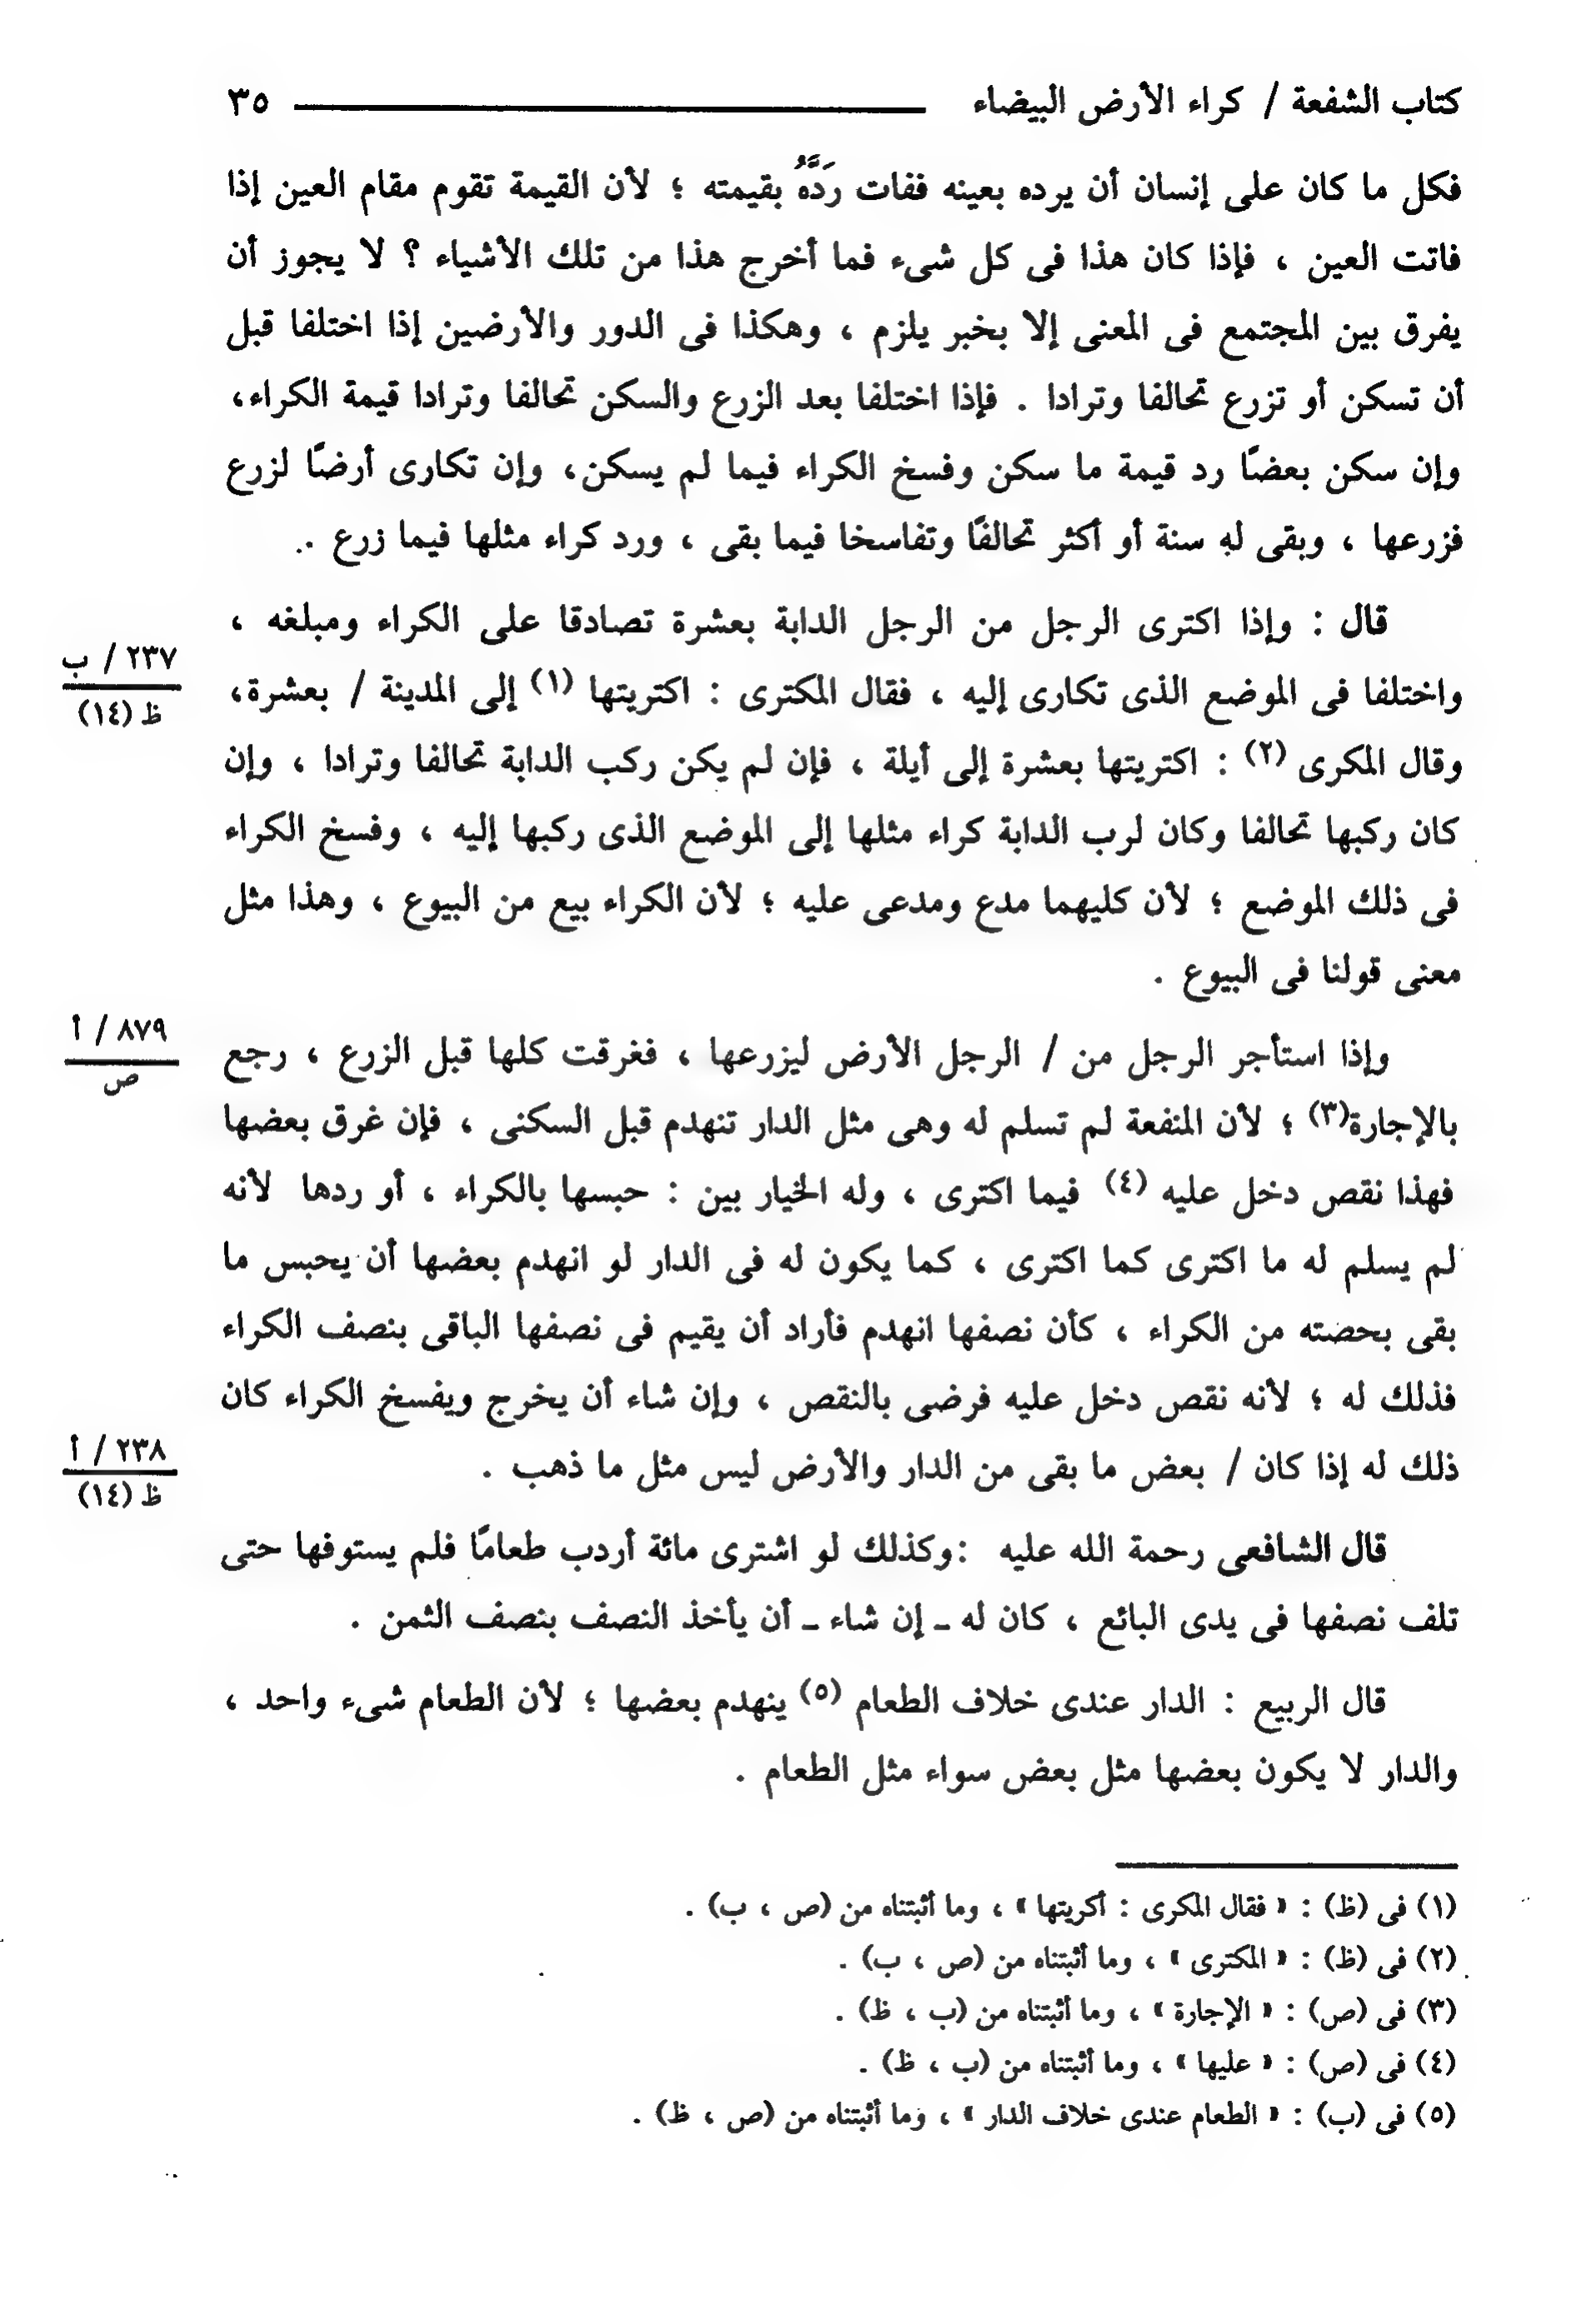 كتاب الشفعة / كراء الأرض البيضاء ٣٥
فكل ما كان على إنسان أن يرده بعينه ففات رَدَّهُ بقيمته ؛ لأن القيمة تقوم مقام العين إذا
فاتت العين ، فإذا كان هذا فى كل شىء فما أخرج هذا من تلك الأشياء ؟ لا يجوز أن
يفرق بين المجتمع فى المعنى إلا بخبر يلزم ، وهكذا فى الدور والأرضين إذا اختلفا قبل
أن تسكن أو تزرع تحالفا وترادا . فإذا اختلفا بعد الزرع والسكن تحالفا وترادا قيمة الكراء،
وإن سكن بعضًا رد قيمة ما سكن وفسخ الكراء فيما لم يسكن، وإن تكارى أرضًا لزرع
فزرعها ، وبقى له سنة أو أكثر تحالفًا وتفاسخا فيما بقى ، ورد كراء مثلها فيما زرع .
قال : وإذا اكترى الرجل من الرجل الدابة بعشرة تصادقا على الكراء ومبلغه ،
٢٣٧ / ب
واختلفا فى الموضع الذى تكارى إليه ، فقال المكترى : اكتريتها (١) إلى المدينة / بعشرة،
ظ (١٤)
وقال المكرى (٢) : اكتريتها بعشرة إلى أيلة ، فإن لم يكن ركب الدابة تحالفا وترادا ، وإن
كان ركبها تحالفا وكان لرب الدابة كراء مثلها إلى الموضع الذى ركبها إليه ، وفسخ الكراء
فى ذلك الموضع ؛ لأن كليهما مدع ومدعى عليه ؛ لأن الكراء بيع من البيوع ، وهذا مثل
معنى قولنا فى البيوع .
٨٧٩ / أ
وإذا استأجر الرجل من / الرجل الأرض ليزرعها ، فغرقت كلها قبل الزرع ، رجع
ص
بالإجارة(٣) ؛ لأن المنفعة لم تسلم له وهى مثل الدار تنهدم قبل السكنى ، فإن غرق بعضها
فهذا نقص دخل عليه (٤) فيما اكترى ، وله الخيار بين : حبسها بالكراء ، أو ردها لأنه
لم يسلم له ما اكترى كما اكترى ، كما يكون له فى الدار لو انهدم بعضها أن يحبس ما
بقى بحصته من الكراء ، كأن نصفها انهدم فأراد أن يقيم فى نصفها الباقى بنصف الكراء
فذلك له ؛ لأنه نقص دخل عليه فرضى بالنقص ، وإن شاء أن يخرج ويفسخ الكراء كان
٢٣٨ / أ
ذلك له إذا كان / بعض ما بقى من الدار والأرض ليس مثل ما ذهب .
ظ (١٤)
قال الشافعى رحمة الله عليه :وكذلك لو اشترى مائة أردب طعامًا فلم يستوفها حتى
تلف نصفها فى يدى البائع ، كان له ـ إن شاء ـ أن يأخذ النصف بنصف الثمن .
قال الربيع : الدار عندى خلاف الطعام (٥) ينهدم بعضها ؛ لأن الطعام شىء واحد ،
والدار لا يكون بعضها مثل بعض سواء مثل الطعام .
(١) فى (ظ) : « فقال المكرى : أكريتها » ، وما أثبتناه من (ص ، ب) .
(٢) فى (ظ) : « المكترى » ، وما أثبتناه من (ص ، ب) .
(٣) فى (ص) : « الإجارة » ، وما أثبتناه من (ب ، ظ) .
(٤) فى (ص) : « عليها » ، وما أثبتناه من (ب ، ظ) .
(٥) فى (ب) : « الطعام عندى خلاف الدار » ، وما أثبتناه من (ص ، ظ) .